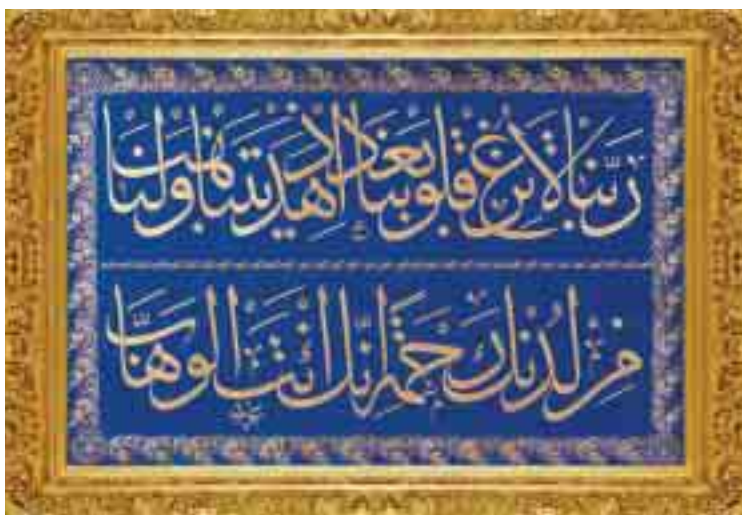 رَبَّنا لا تزغ قلوبنا بعد اذ هديتنا وهب لنا
من لدنك رحمة انّك انت الوهّاب